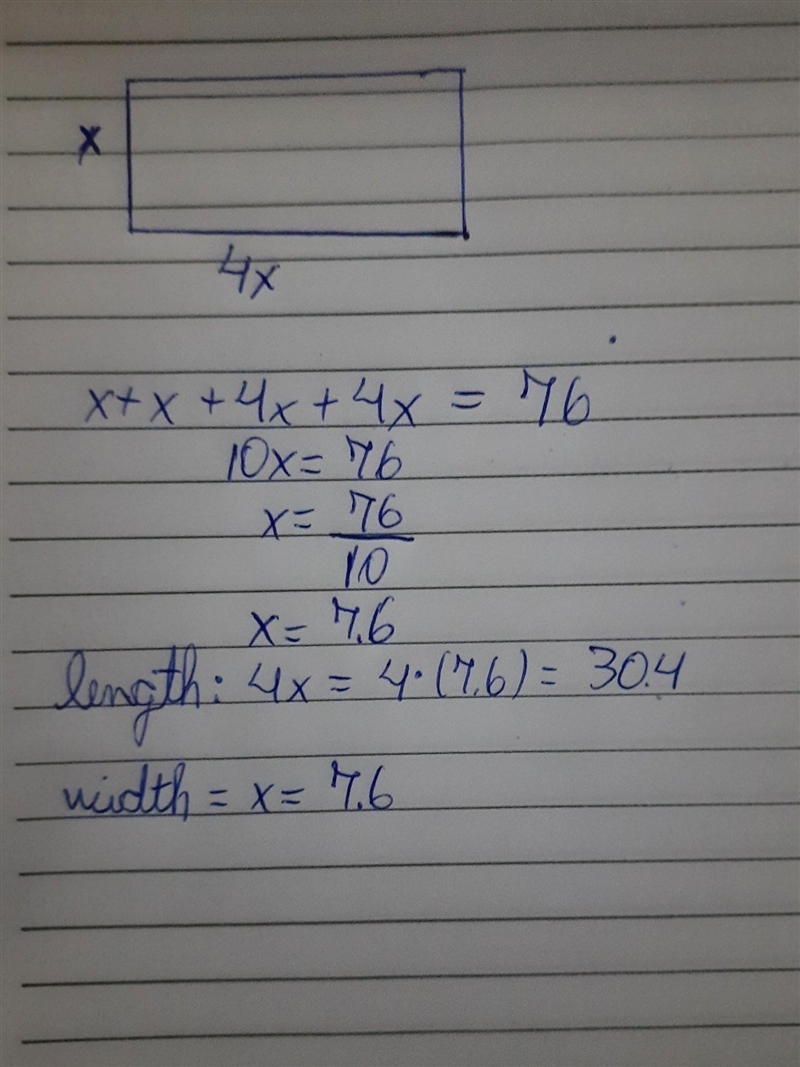 x
4x
x+x+4x+4x = 76
10x= 76
x= 76
10
x= 7.6
length: 4x = 4·(7.6)= 30.4
width = x= 7.6